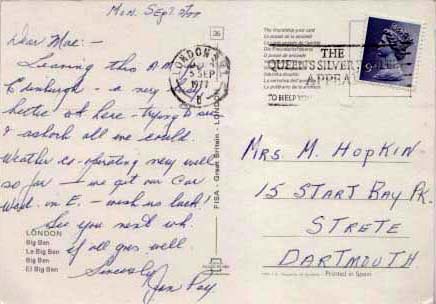 Mon. Sept 5/77
Dear Mae:-
Leaving this A.M.
Edinburgh - a very
hectic wk here - trying to see
& absorb all we could.
Weather co-operating very well
so far - we get our car
Wed. in E. - wish us luck!
See you next wk.
if all goes well.
Sincerely,
LONDON
Big Ben
Le Big Ben
Big Ben
El Big Ben
36
PISA - Great Britain - LONDON
LONDON
5 SEP
1977
THE
QUEEN'S SILVER
APPEAL
TO HELP
9
MRS. M. HOPKIN
15 START BAY PK.
STRETE
DARTMOUTH
Printed in Spain